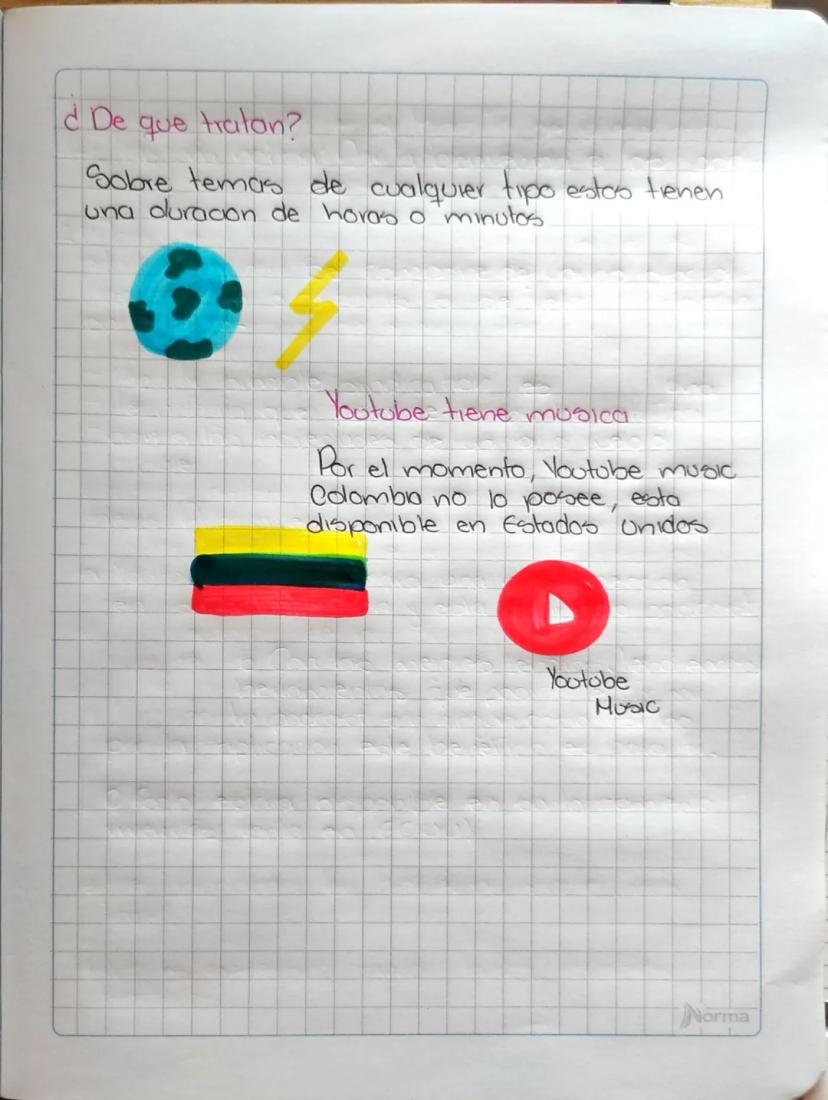 ¿De que tratan?
Sobre temas de cualquier tipo estos tienen
una duracion de horas o minutos
Youtube tiene musica
Por el momento, Youtube music
Colombia no lo posee, esta
disponible en Estados Unidos
Youtube
Music
Norma